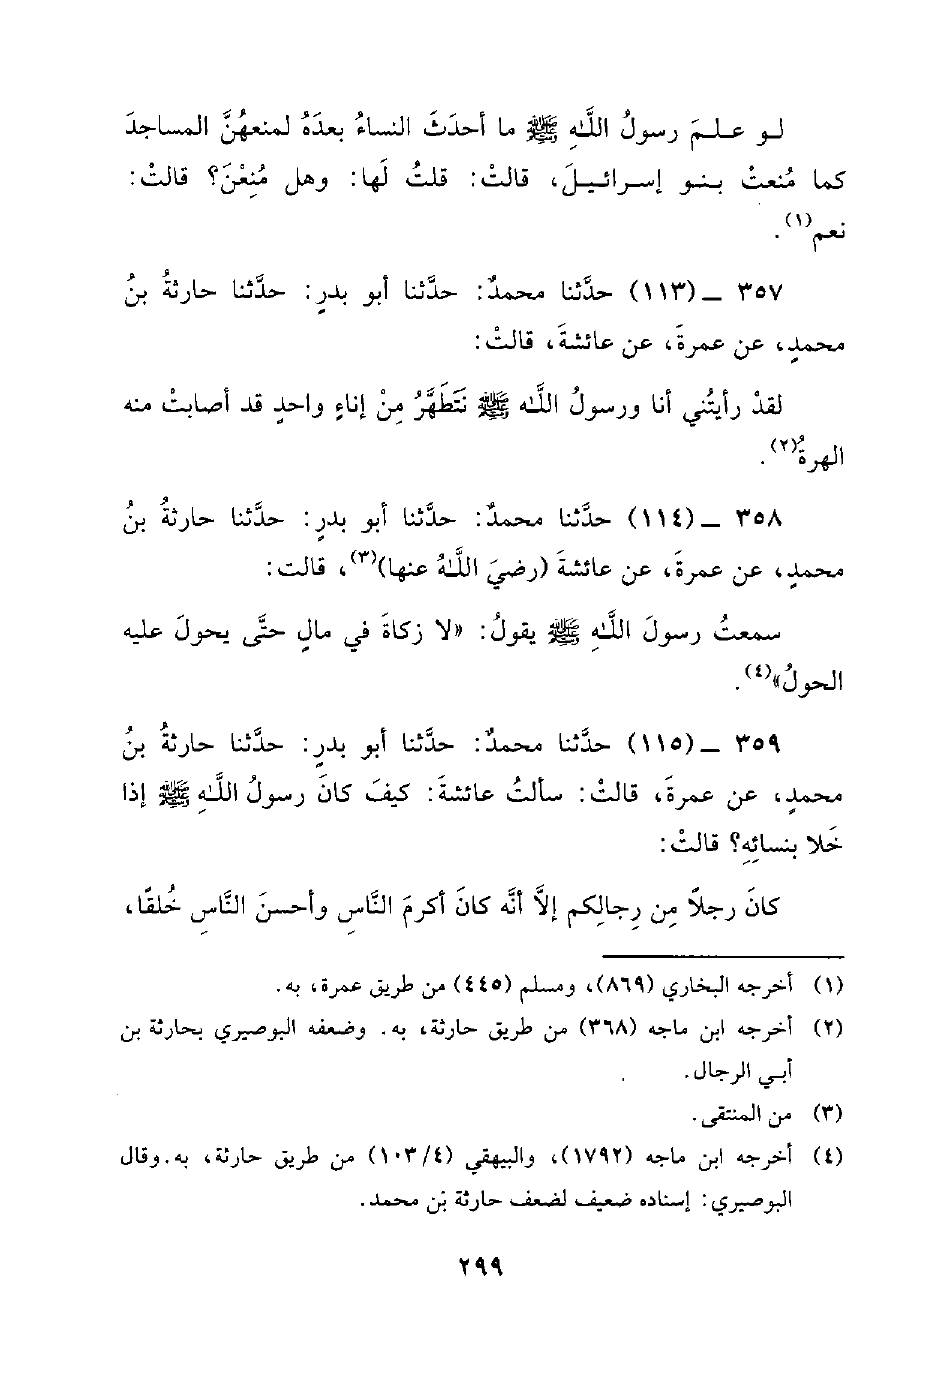 لو علمَ رسولُ اللَّهِ ﷺ ما أحدَثَ النساءُ بعدَهُ لمنعهُنَّ المساجدَ
كما مُنعتْ بنو إسرائيلَ، قالتْ: قلتُ لَها: وهل مُنِعْنَ؟ قالتْ:
نعم(١).
٣٥٧ ــ (١١٣) حدَّثنا محمدٌ: حدَّثنا أبو بدرٍ: حدَّثنا حارثةُ بنُ
محمدٍ، عن عمرةَ، عن عائشةَ، قالتْ:
لقدْ رأيتُني أنا ورسولُ اللَّه ﷺ نَتَطَهَّرُ مِنْ إناءٍ واحدٍ قد أصابتْ منه
الهرةُ(٢).
٣٥٨ ــ (١١٤) حدَّثنا محمدٌ: حدَّثنا أبو بدرٍ: حدَّثنا حارثةُ بنُ
محمدٍ، عن عمرةَ، عن عائشةَ (رضيَ اللَّهُ عنها)(٣)، قالت:
سمعتُ رسولَ اللَّهِ ﷺ يقولُ: «لا زكاةَ في مالٍ حتَّى يحولَ عليه
الحولُ»(٤).
٣٥٩ ــ (١١٥) حدَّثنا محمدٌ: حدَّثنا أبو بدرٍ: حدَّثنا حارثةُ بنُ
محمدٍ، عن عمرةَ، قالتْ: سألتُ عائشةَ: كيفَ كانَ رسولُ اللَّهِ ﷺ إذا
خَلا بنسائِهِ؟ قالتْ:
كانَ رجلاً مِن رِجالِكم إلاَّ أنَّه كانَ أكرمَ النَّاسِ وأحسنَ النَّاسِ خُلقًا،
(١) أخرجه البخاري (٨٦٩)، ومسلم (٤٤٥) من طريق عمرة، به.
(٢) أخرجه ابن ماجه (٣٦٨) من طريق حارثة، به. وضعفه البوصيري بحارثة بن
أبي الرجال.
(٣) من المنتقى.
(٤) أخرجه ابن ماجه (١٧٩٢)، والبيهقي (٤/١٠٣) من طريق حارثة، به. وقال
البوصيري: إسناده ضعيف لضعف حارثة بن محمد.
٢٩٩